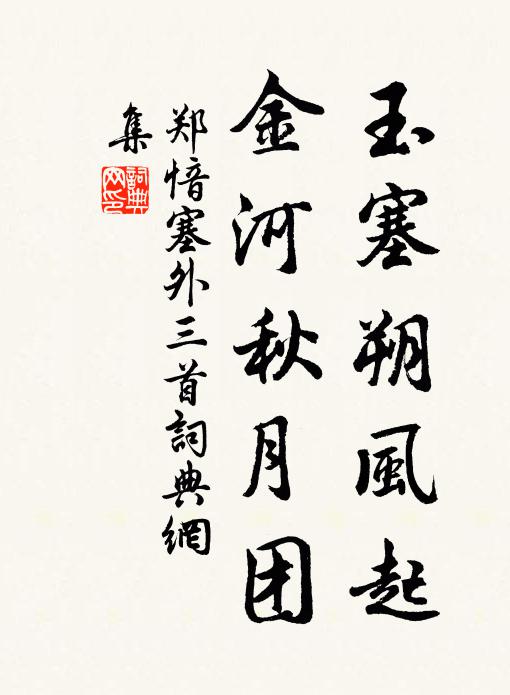 玉塞朔風起
金河秋月团
郑愔塞外三首詞典網
集
詞典
网印